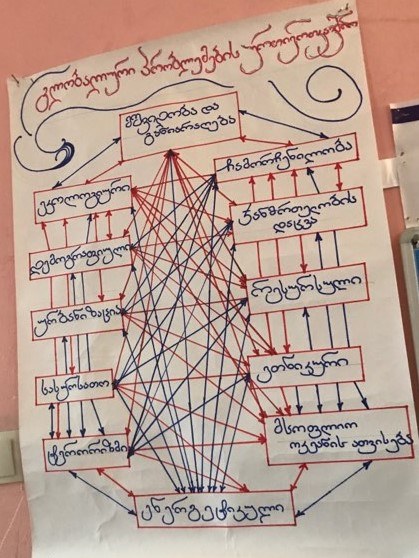 გლობალური პრობლემების ურთიერთკავშირი
მშვიდობა და
განიარაღება
ჩამორჩენილობა
ეკოლოგიური
ჯანმრთელობის
დაცვა
დემოგრაფიული
რესურსული
ურბანიზაცია
ეთნიკური
სასურსათო
მსოფლიო
ოკეანის ათვისება
ტერორიზმი
ენერგეტიკული